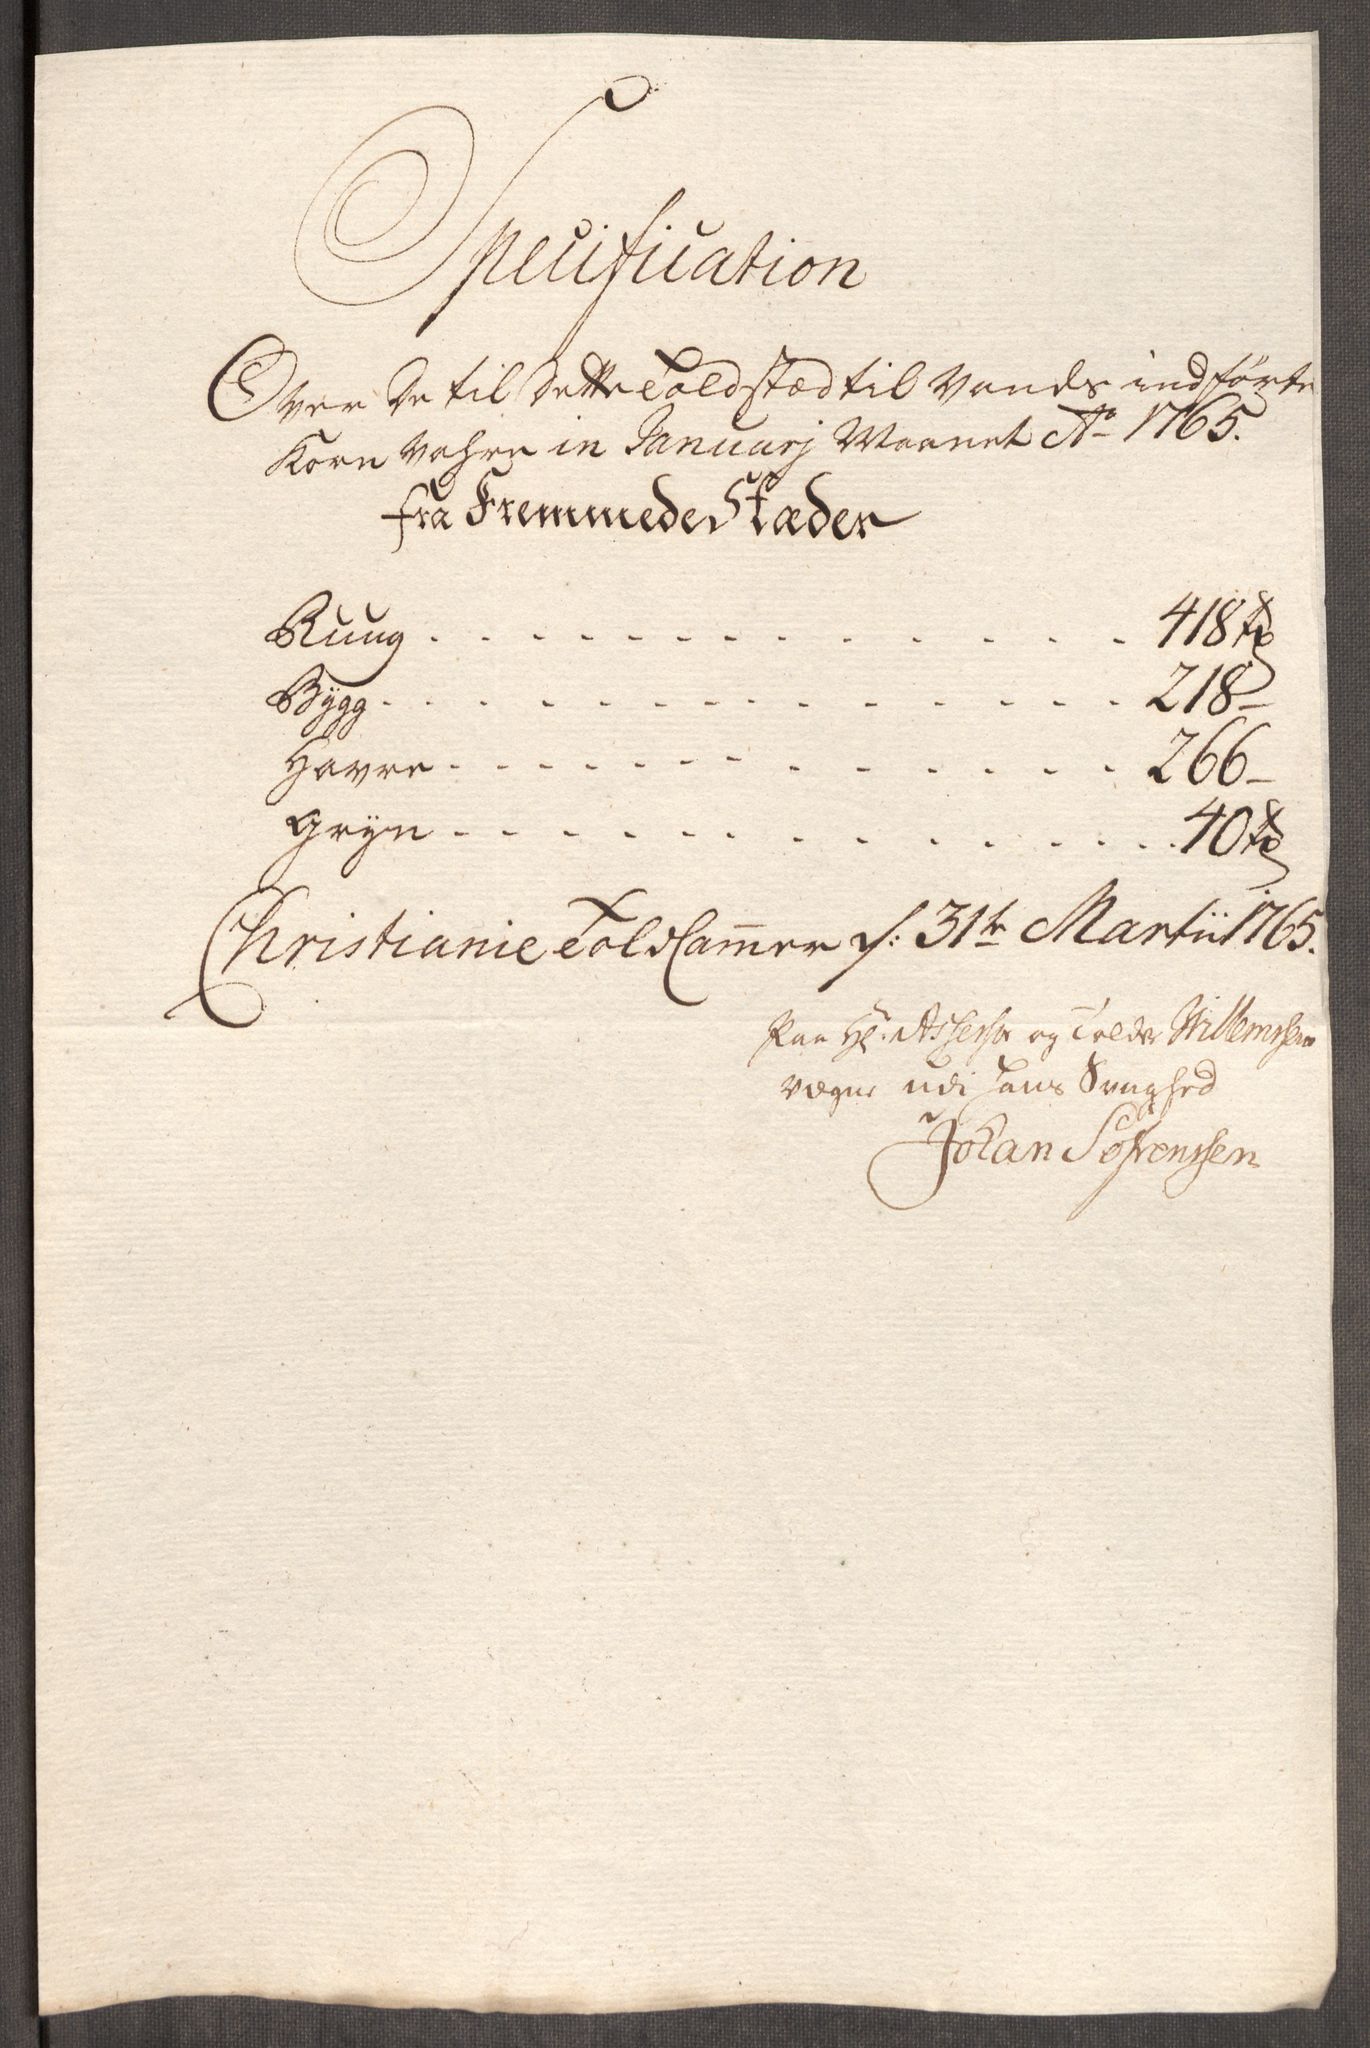 Specification
Over De til Dette Toldstæd til Vands indførte
Korn Vahre in Januarj Maanet Aō 1765.
fra Fremmede Stæder
Ruug . . . . . . . . . . . . . 418 td
Bygg . . . . . . . . . . . . . . 218 –
Havre . . . . . . . . . . . . . 266 –
Gryn . . . . . . . . . . . . . 40 td
Christianie Told Cam̅er d: 31te Martii 1765.
Paa Hr. Assessor og Tolder Willemsens
vegne udi hans Svaghed
Johan Sørenssen